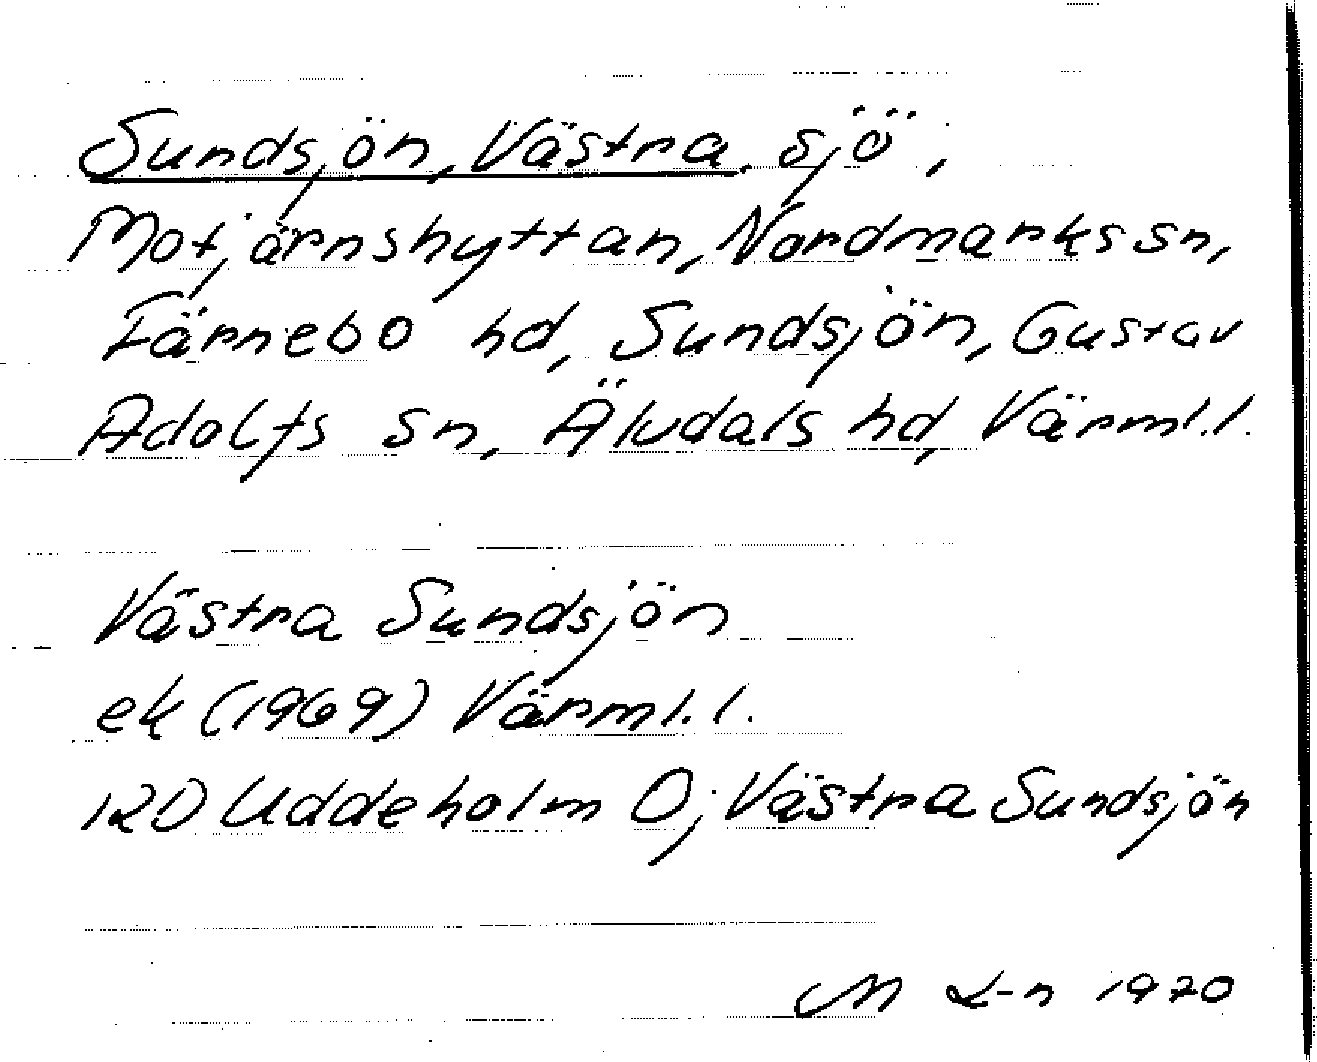 Sundsjön, Västra, sjö,
Motjärnshyttan, Nordmarks sn,
Färnebo hd, Sundsjön, Gustav
Adolfs sn, Älvdals hd, Värml.l.
Västra Sundsjön
ek (1969) Värml.l.
12D Uddeholm O; Västra Sundsjön
M L-n 1970